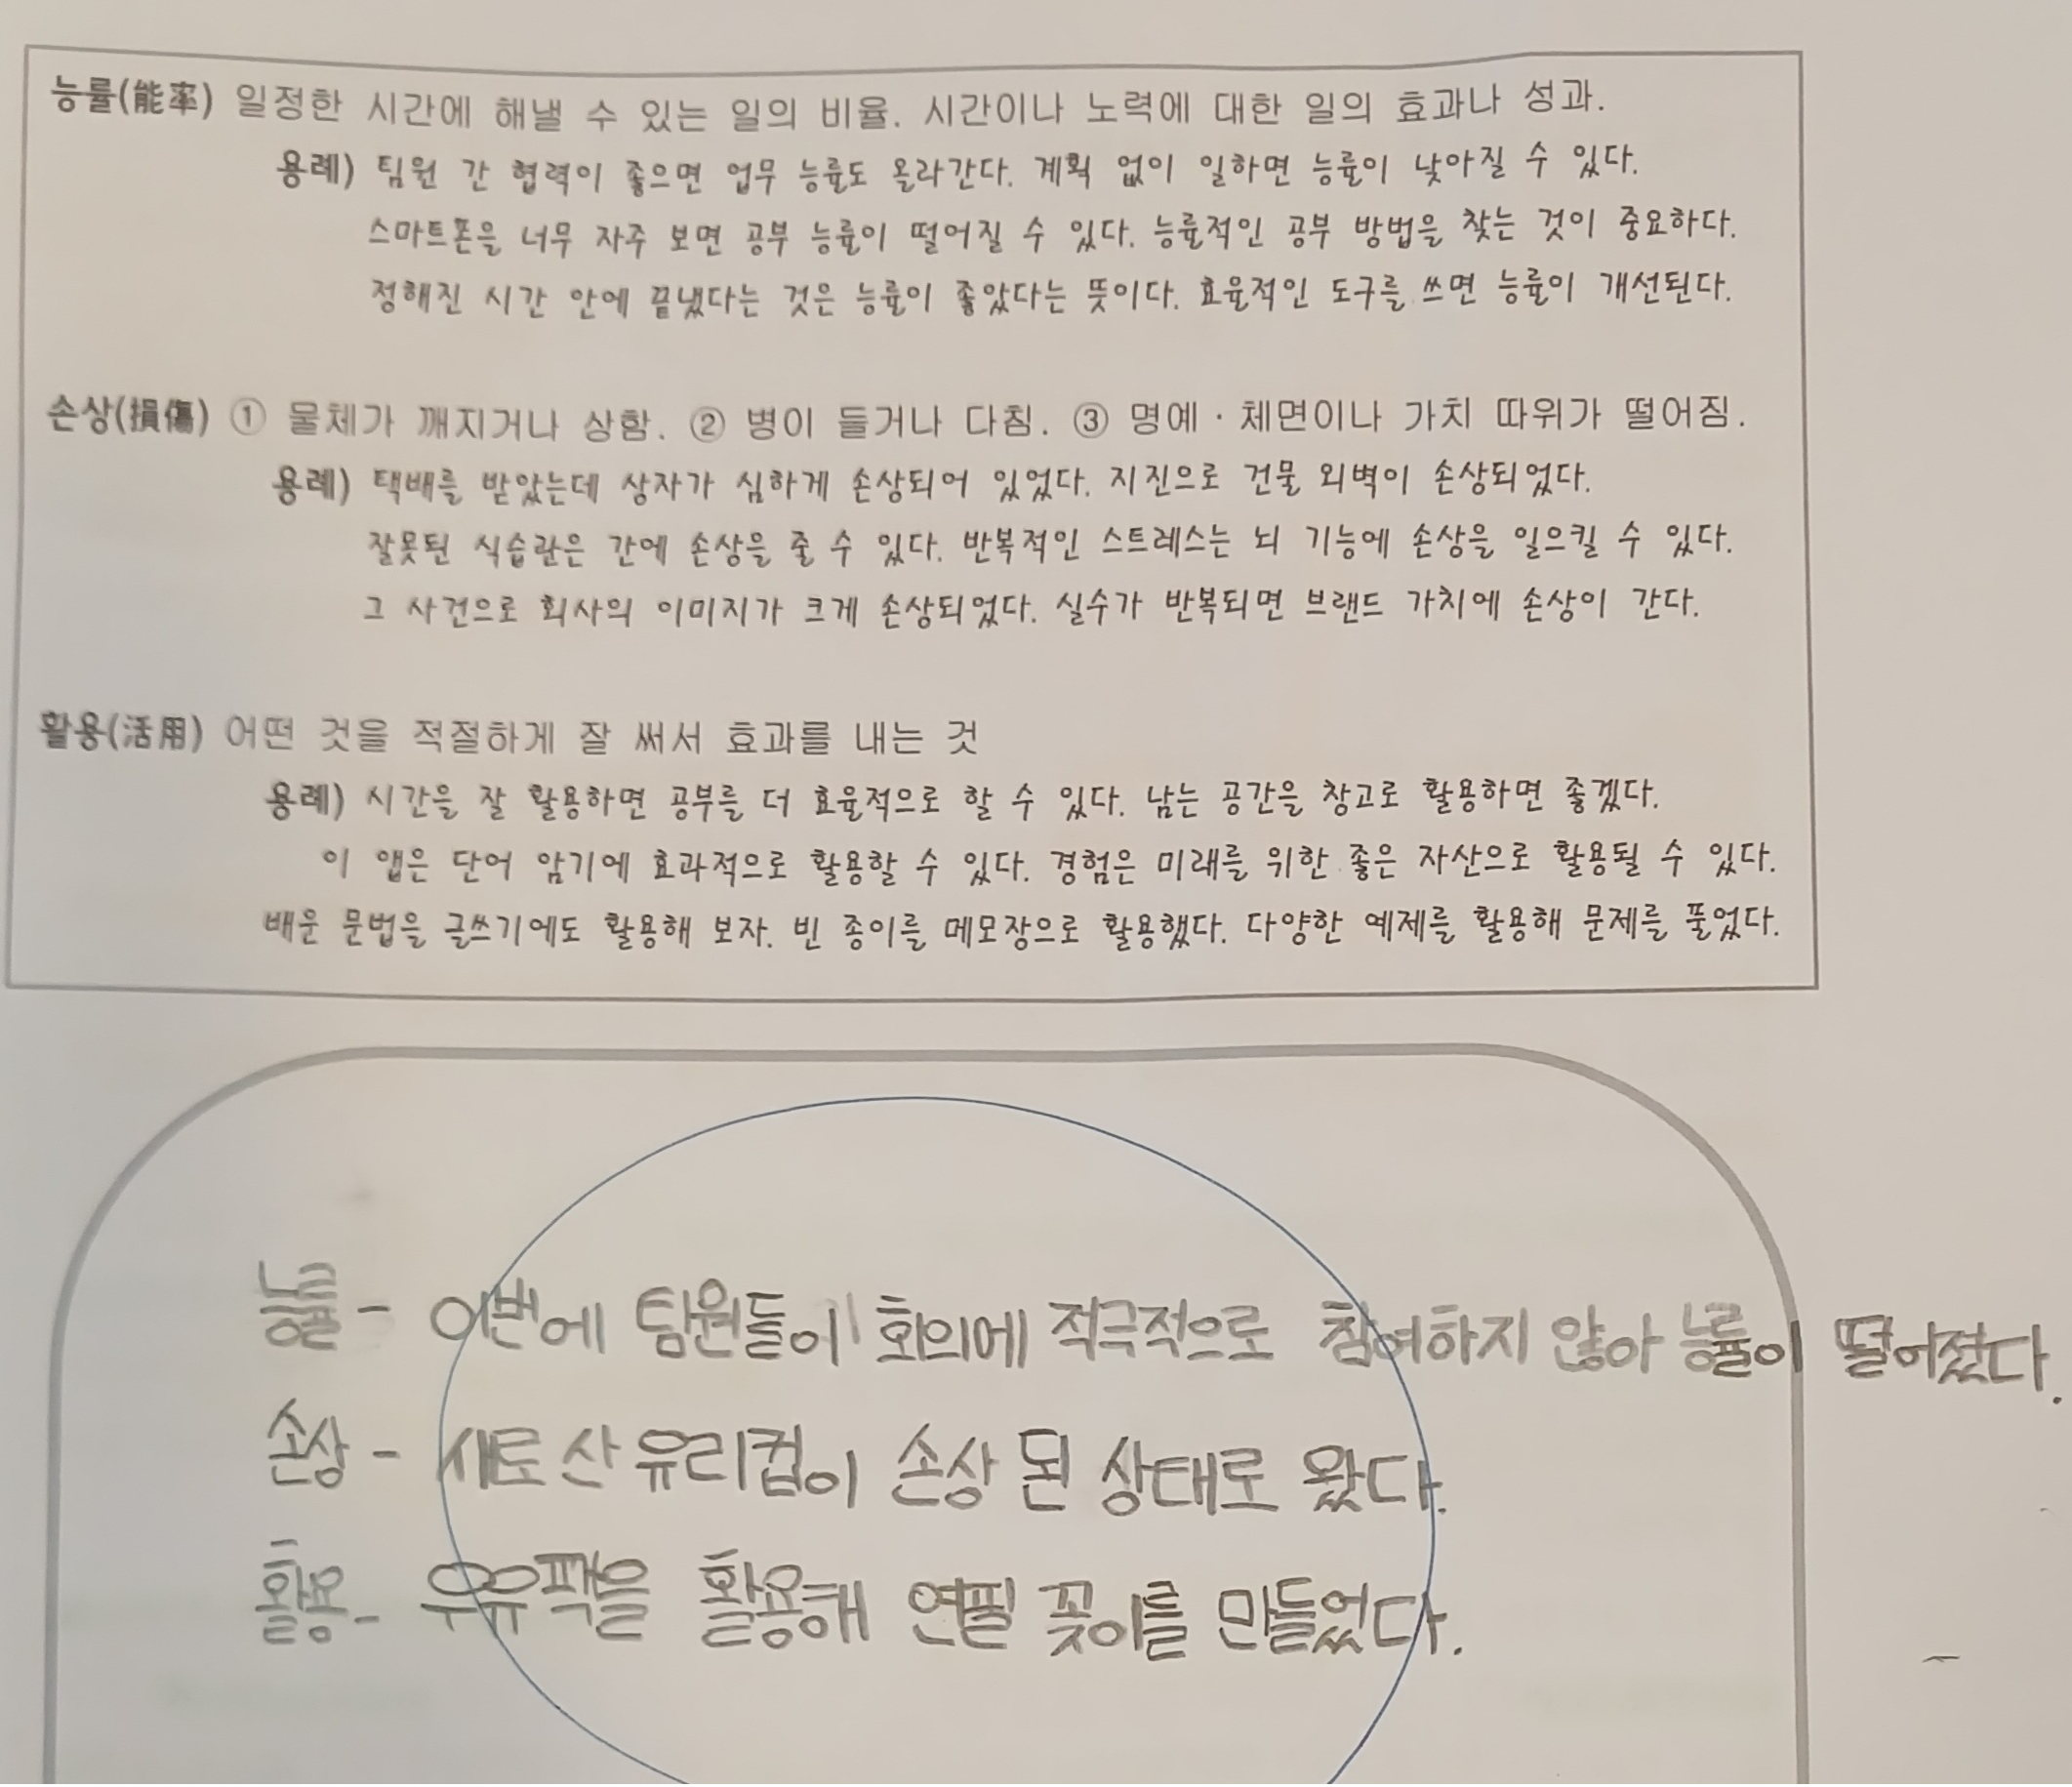 능률(能率) 일정한 시간에 해낼 수 있는 일의 비율. 시간이나 노력에 대한 일의 효과나 성과.
용례) 팀원 간 협력이 좋으면 업무 능률도 올라간다. 계획 없이 일하면 능률이 낮아질 수 있다.
스마트폰을 너무 자주 보면 공부 능률이 떨어질 수 있다. 능률적인 공부 방법을 찾는 것이 중요하다.
정해진 시간 안에 끝냈다는 것은 능률이 좋았다는 뜻이다. 효율적인 도구를 쓰면 능률이 개선된다.
손상(損傷) ① 물체가 깨지거나 상함. ② 병이 들거나 다침. ③ 명예·체면이나 가치 따위가 떨어짐.
용례) 택배를 받았는데 상자가 심하게 손상되어 있었다. 지진으로 건물 외벽이 손상되었다.
잘못된 식습관은 간에 손상을 줄 수 있다. 반복적인 스트레스는 뇌 기능에 손상을 일으킬 수 있다.
그 사건으로 회사의 이미지가 크게 손상되었다. 실수가 반복되면 브랜드 가치에 손상이 간다.
활용(活用) 어떤 것을 적절하게 잘 써서 효과를 내는 것
용례) 시간을 잘 활용하면 공부를 더 효율적으로 할 수 있다. 남는 공간을 창고로 활용하면 좋겠다.
이 앱은 단어 암기에 효과적으로 활용할 수 있다. 경험은 미래를 위한 좋은 자산으로 활용될 수 있다.
배운 문법을 글쓰기에도 활용해 보자. 빈 종이를 메모장으로 활용했다. 다양한 예제를 활용해 문제를 풀었다.
능률 - 이번에 팀원들이 회의에 적극적으로 참여하지 않아 능률이 떨어졌다.
손상 - 새로 산 유리컵이 손상 된 상태로 왔다.
활용 - 우유팩을 활용해 연필 꽂이를 만들었다.